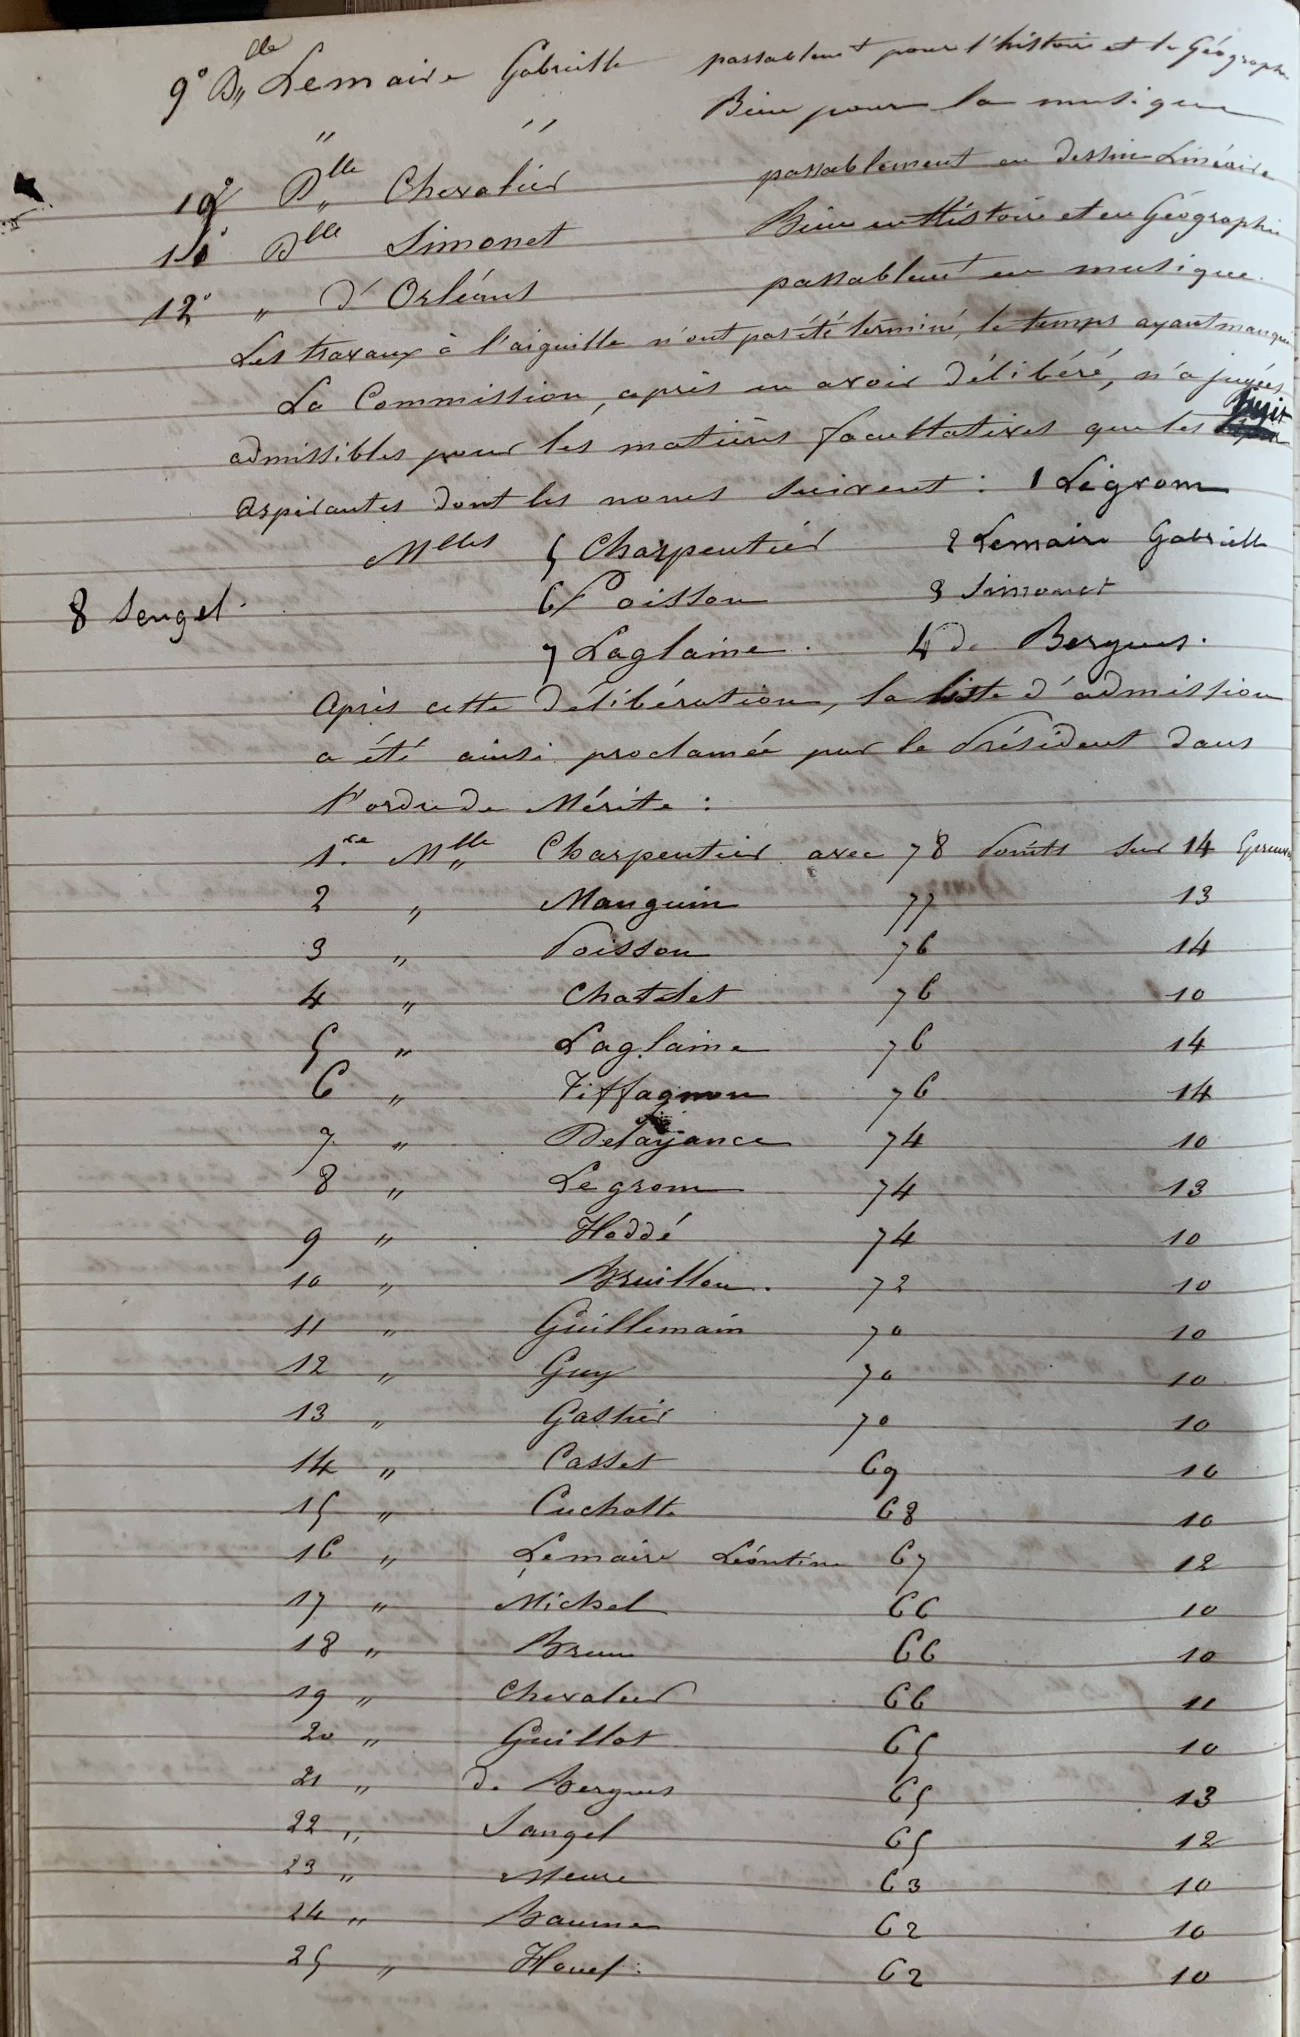 9° Dlle Lemaire Gabrielle passablemt pour l'histoire et la Géographie
" " Bien pour la musique
10° Dlle Chevalier passablement en dessin Linéaire
11° Dlle Simonet Bien en Histoire et en Géographie
12° " d'Orléans passablemt en musique.
Les travaux à l'aiguille n'ont pas été terminé, le temps ayant manqué
La Commission, après en avoir délibéré, n'a jugées
admissibles pour les matières facultatives que les huit
aspirantes dont les noms suivent : 1 Legrom
Mlles 5 Charpentier 2 Lemaire Gabrielle
8 Sengel. 6 Poisson 3 Simonet
7 Laglaine. 4 de Bergues.
Après cette délibération, la liste d'admission
a été ainsi proclamée par le Président dans
l'ordre de Mérite :
1re Mlle Charpentier avec 78 Points sur 14 Epreuves
2 " Manguin 77 13
3 " Poisson 76 14
4 " Chatelet 76 10
5 " Laglaine 76 14
6 " Tiffagnon 76 14
7 " Delajance 74 10
8 " Legrom 74 13
9 " Hoddé 74 10
10 " Bruillon. 72 10
11 " Guillemain 70 10
12 " Guy 70 10
13 " Gastier 70 10
14 " Casset 69 10
15 " Cuchotte 68 10
16 " Lemaire Léontine 67 12
17 " Michel 66 10
18 " Brun 66 10
19 " Chevalier 66 11
20 " Guillot 65 10
21 " de Bergues 65 13
22 " Sangel 65 12
23 " Meure 63 10
24 " Baume 62 10
25 " Houel : 62 10